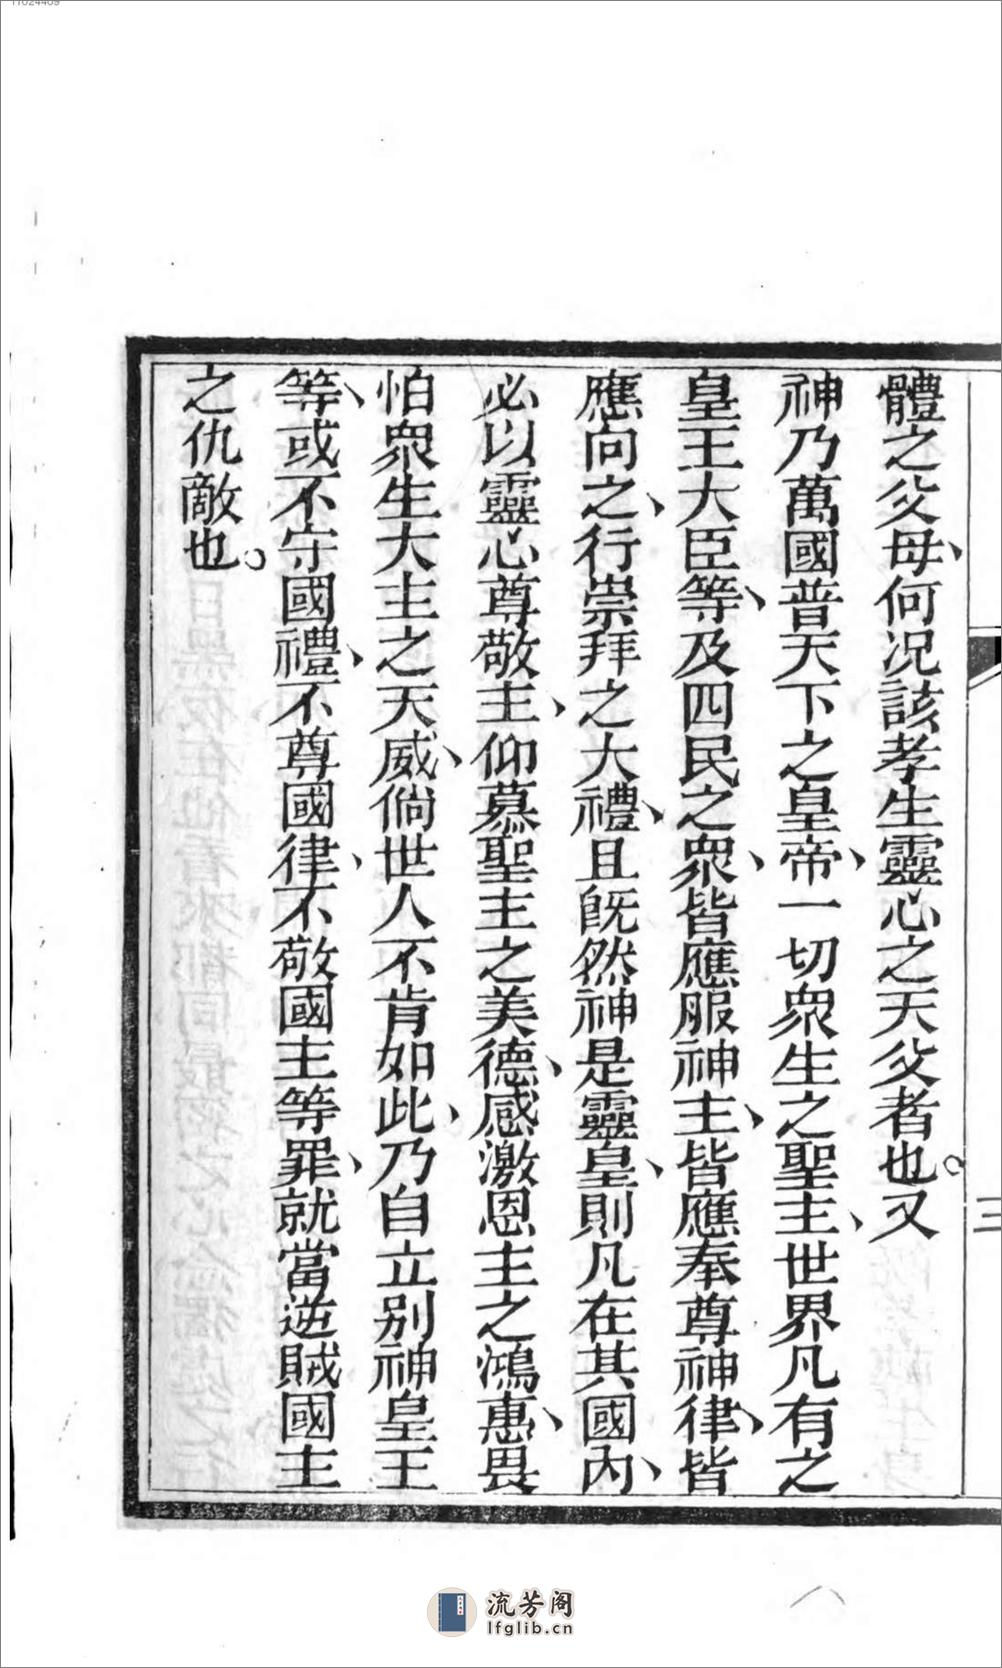 體之父母、何況該孝生靈心之天父者也。又
神乃萬國普天下之皇帝、一切衆生之聖主、世界凡有之
皇王大臣等、及四民之衆、皆應服神主、皆應奉尊神律、皆
應向之、行崇拜之大禮、且旣然神是靈皇、則凡在其國內、
必以靈心尊敬主、仰慕聖主之美德、感激恩主之鴻惠、畏
怕衆生大主之天威、倘世人不肯如此、乃自立別神皇王
等、或不守國禮、不尊國律、不敬國主等罪、就當逆賊國主
之仇敵也。
三
流芳阁
lfglib.cn